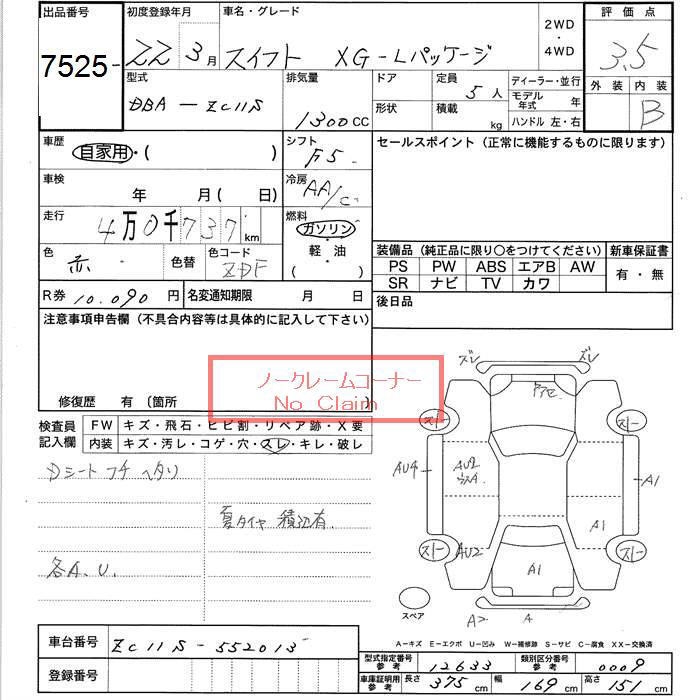 出品番号 初度登録年月 車名・グレード 2WD ・ 4WD 評価点
7525- 22 3月 スイフト XG-Lパッケージ 3.5
型式 排気量 ドア 定員 ディーラー・並行 外装 内装
DBA-ZC11S 1300CC 5人 モデル年式 年 B
形状 積載 kg ハンドル 左・右
車歴 シフト セールスポイント(正常に機能するものに限ります)
自家用・( ) F5
車検 冷房
年 月( 日) AA/C
走行 燃料
4万0千737km ガソリン・軽・油 ( )
色 色替 色コード 装備品(純正品に限り○をつけてください) 新車保証書
赤 ZDF PS PW ABS エアB AW 有・無
SR ナビ TV カワ
R券 10.090円 名変通知期限 月 日 後日品
注意事項申告欄(不具合内容等は具体的に記入して下さい)
ノークレームコーナー
No Claim
修復歴 有〔箇所
検査員記入欄 FW キズ・飛石・ヒビ割・リペア跡・X要
内装 キズ・汚レ・コゲ・穴・スレ・キレ・破レ
Dシート フチ ヘタリ
夏タイヤ 積込有
各A.U.
ズレ ズレ
スト スト
AU4 AU2 A1
A1
スト AU2 スト
A1
スペア A2 A
A-キズ E-エクボ U-凹み W-補修跡 S-サビ C-腐食 XX-交換済
車台番号 ZC11S-552013
型式指定番号 参考 12633 類別区分番号 参考 0009
登録番号
車庫証明用 参考 長さ 375cm 幅 169cm 高さ 151cm